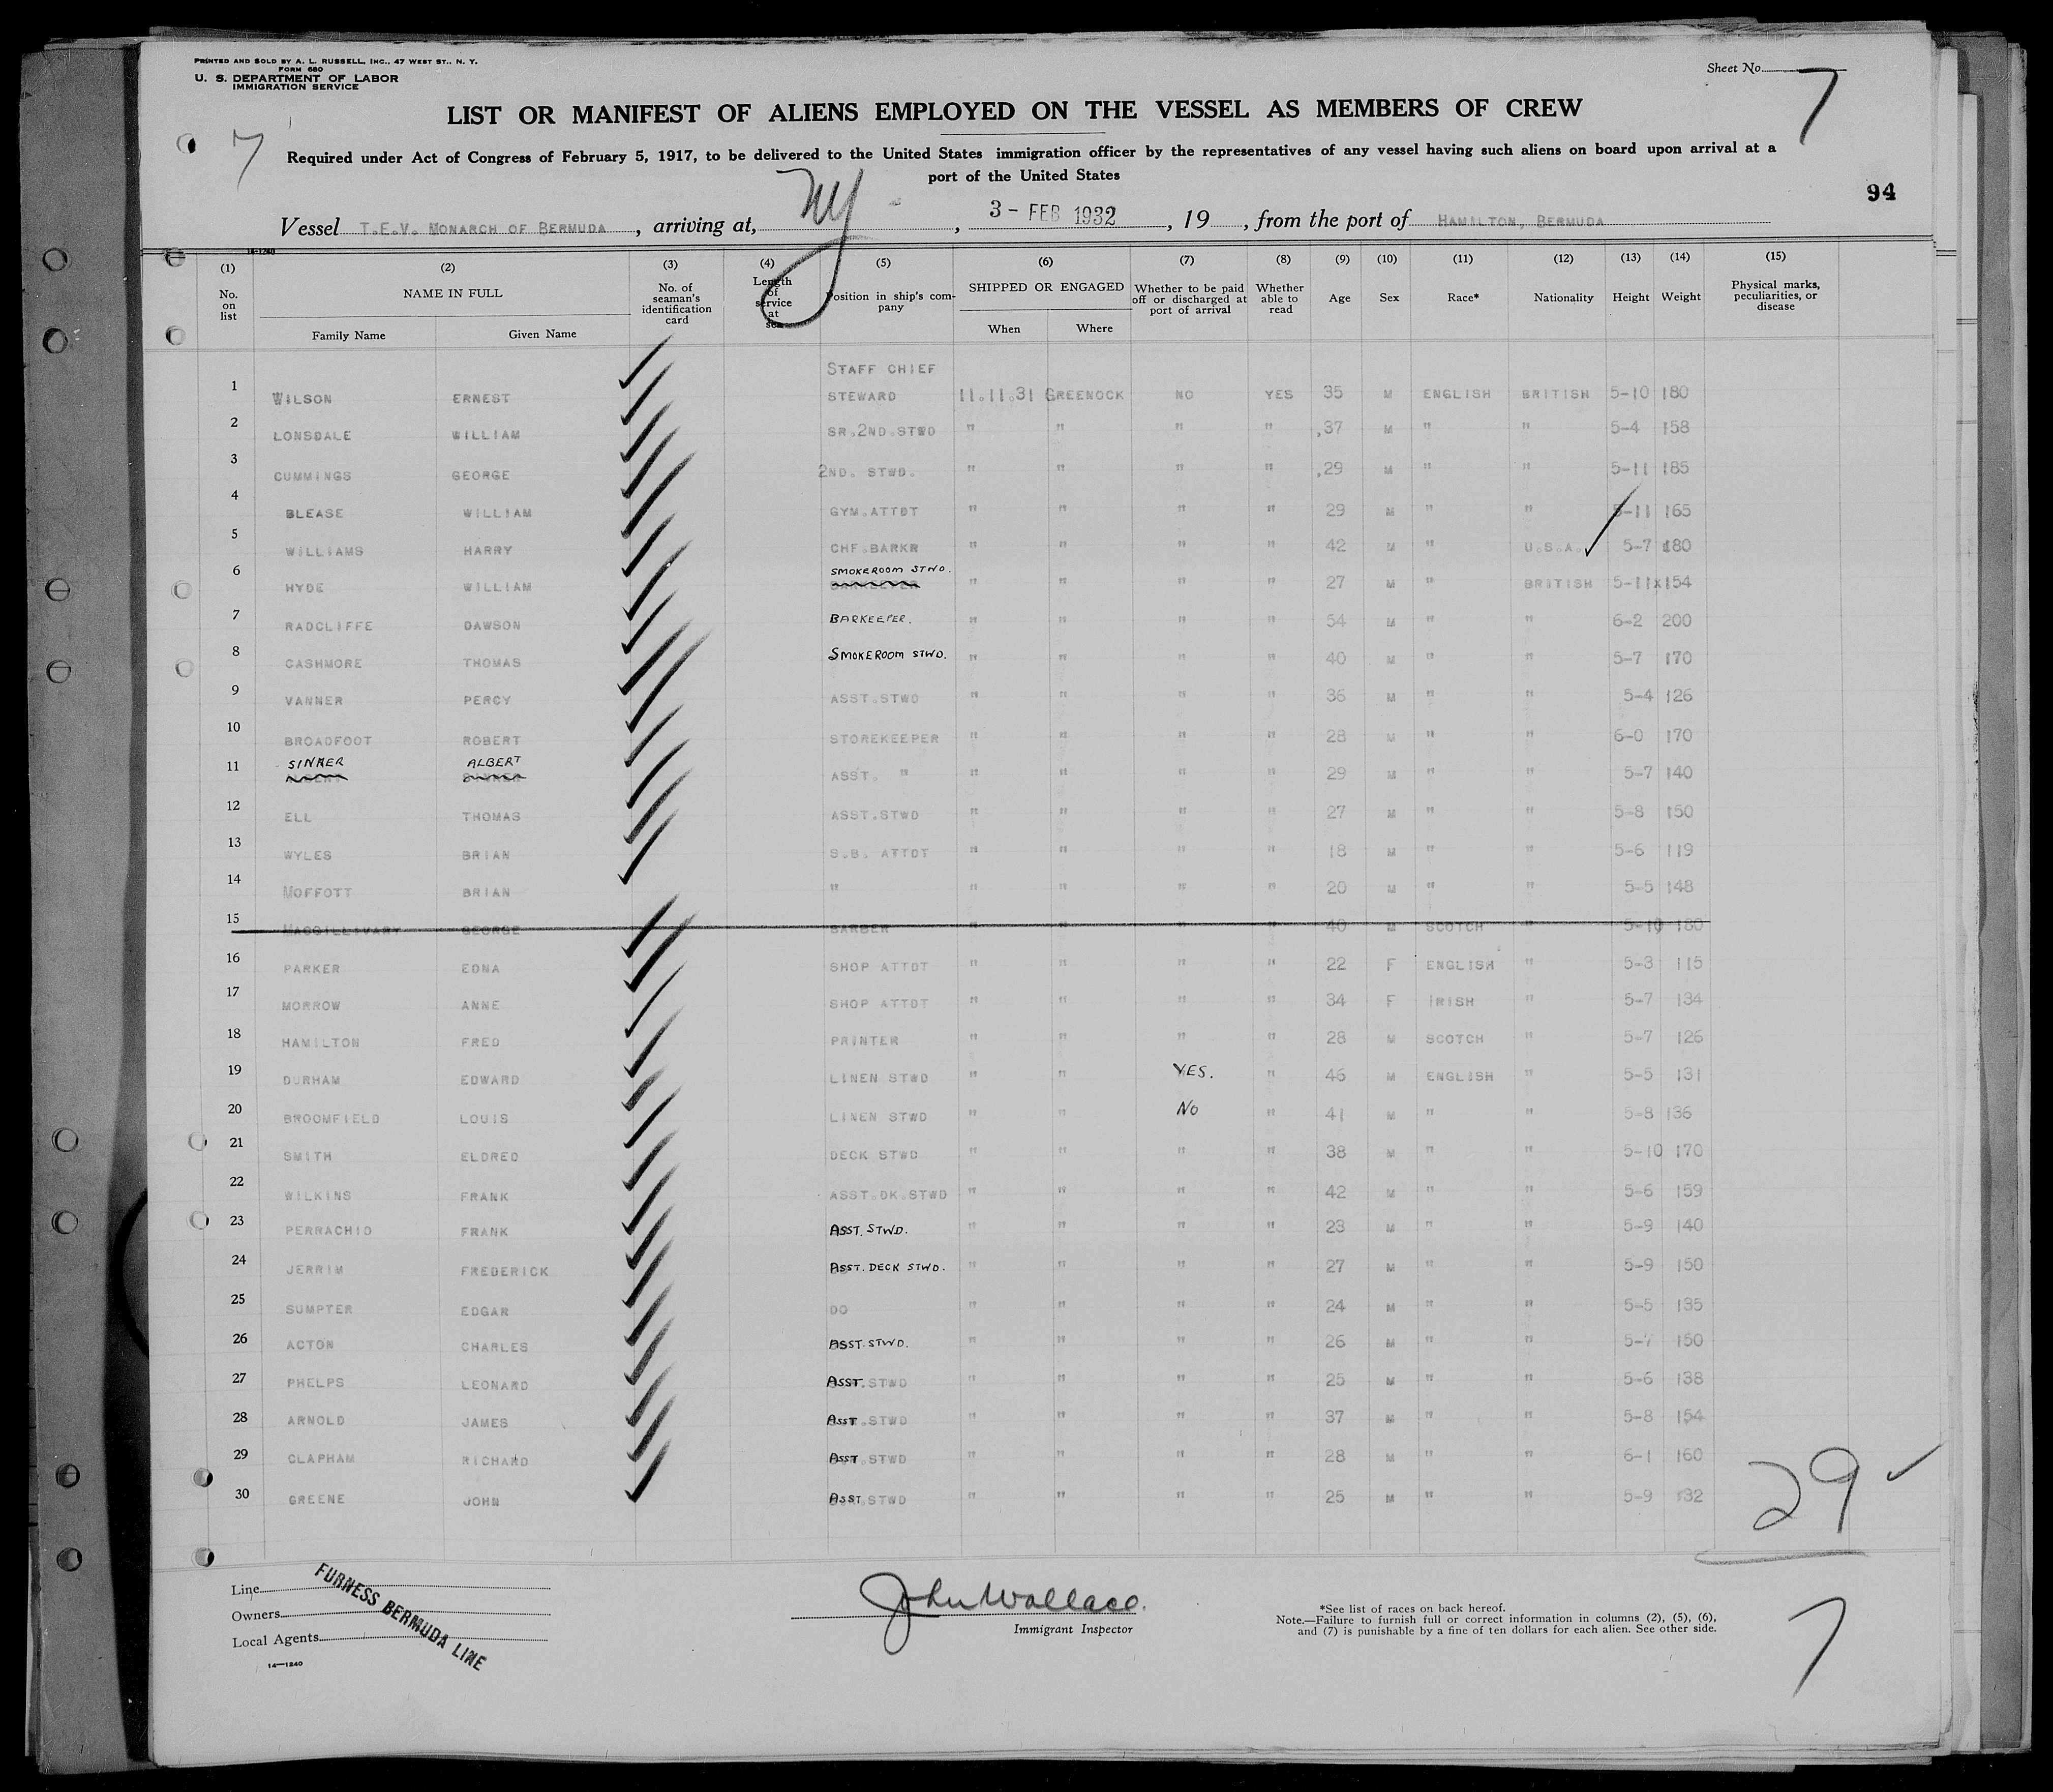 PRINTED AND SOLD BY A. L. RUSSELL, INC., 47 WEST ST., N. Y.
FORM 680
U. S. DEPARTMENT OF LABOR
IMMIGRATION SERVICE
Sheet No. 7
LIST OR MANIFEST OF ALIENS EMPLOYED ON THE VESSEL AS MEMBERS OF CREW
7
Required under Act of Congress of February 5, 1917, to be delivered to the United States immigration officer by the representatives of any vessel having such aliens on board upon arrival at a
port of the United States
94
Vessel T.E.V. MONARCH OF BERMUDA, arriving at, NY, 3 - FEB 1932, 19, from the port of HAMILTON, BERMUDA
14-1240
(1) (2) (3) (4) (5) (6) (7) (8) (9) (10) (11) (12) (13) (14) (15)
No. on list NAME IN FULL Family Name Given Name No. of seaman's identification card Length of service at sea Position in ship's company SHIPPED OR ENGAGED When Where Whether to be paid off or discharged at port of arrival Whether able to read Age Sex Race* Nationality Height Weight Physical marks, peculiarities, or disease
STAFF CHIEF
1 WILSON ERNEST STEWARD 11.11.31 GREENOCK NO YES 35 M ENGLISH BRITISH 5-10 180
2 LONSDALE WILLIAM SR.2ND.STWD " " " " 37 M " " 5-4 158
3 CUMMINGS GEORGE 2ND. STWD. " " " " 29 M " " 5-11 185
4 BLEASE WILLIAM GYM.ATTDT " " " " 29 M " " 5-11 165
5 WILLIAMS HARRY CHF.BARKR " " " " 42 M " U.S.A. 5-7 180
6 HYDE WILLIAM SMOKEROOM STWD. BARKEEPER " " " " 27 M " BRITISH 5-11 154
7 RADCLIFFE DAWSON BARKEEPER. " " " " 54 M " " 6-2 200
8 CASHMORE THOMAS SMOKEROOM STWD. " " " " 40 M " " 5-7 170
9 VANNER PERCY ASST.STWD " " " " 36 M " " 5-4 126
10 BROADFOOT ROBERT STOREKEEPER " " " " 28 M " " 6-0 170
11 SINKER ALBERT ASST. " " " " " 29 M " " 5-7 140
12 ELL THOMAS ASST.STWD " " " " 27 M " " 5-8 150
13 WYLES BRIAN S.B. ATTDT " " " " 18 M " " 5-6 119
14 MOFFOTT BRIAN " " " " " 20 M " " 5-5 148
15 MACGILLIVARY GEORGE BARBER " " " " 40 M SCOTCH " 5-10 180
16 PARKER EDNA SHOP ATTDT " " " " 22 F ENGLISH " 5-3 115
17 MORROW ANNE SHOP ATTDT " " " " 34 F IRISH " 5-7 134
18 HAMILTON FRED PRINTER " " " " 28 M SCOTCH " 5-7 126
19 DURHAM EDWARD LINEN STWD " " YES. " 46 M ENGLISH " 5-5 131
20 BROOMFIELD LOUIS LINEN STWD " " NO " 41 M " " 5-8 136
21 SMITH ELDRED DECK STWD " " " " 38 M " " 5-10 170
22 WILKINS FRANK ASST.DK.STWD " " " " 42 M " " 5-6 159
23 PERRACHIO FRANK ASST. STWD. " " " " 23 M " " 5-9 140
24 JERRIM FREDERICK ASST. DECK STWD. " " " " 27 M " " 5-9 150
25 SUMPTER EDGAR DO " " " " 24 M " " 5-5 135
26 ACTON CHARLES ASST STWD. " " " " 26 M " " 5-7 150
27 PHELPS LEONARD ASST.STWD " " " " 25 M " " 5-6 138
28 ARNOLD JAMES ASST.STWD " " " " 37 M " " 5-8 154
29 CLAPHAM RICHARD ASST.STWD " " " " 28 M " " 6-1 160
30 GREENE JOHN ASST.STWD " " " " 25 M " " 5-9 132
29
Line
Owners
Local Agents
FURNESS BERMUDA LINE
14—1240
John Wallace.
Immigrant Inspector
*See list of races on back hereof.
Note.—Failure to furnish full or correct information in columns (2), (5), (6),
and (7) is punishable by a fine of ten dollars for each alien. See other side.
7